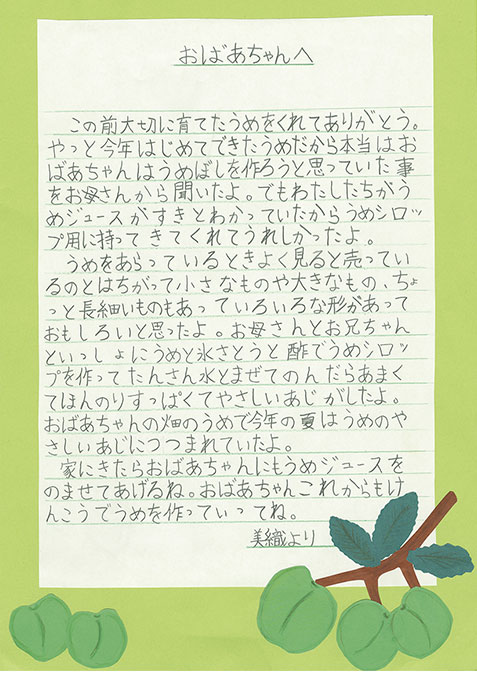 おばあちゃんへ
この前大切に育てたうめをくれてありがとう。
やっと今年はじめてできたうめだから本当はお
ばあちゃんはうめぼしを作ろうと思っていた事
をお母さんから聞いたよ。でもわたしたちがう
めジュースがすきとわかっていたからうめシロッ
プ用に持ってきてくれてうれしかったよ。
うめをあらっているときよく見ると売ってい
るのとはちがって小さなものや大きなもの、ちょ
っと長細いものもあっていろいろな形があって
おもしろいと思ったよ。お母さんとお兄ちゃん
といっしょにうめと氷さとうと酢でうめシロッ
プを作ってたんさん水とまぜてのんだらあまく
てほんのりすっぱくてやさしいあじがしたよ。
おばあちゃんの畑のうめで今年の夏はうめのや
さしいあじにつつまれていたよ。
家にきたらおばあちゃんにもうめジュースを
のませてあげるね。おばあちゃんこれからもけ
んこうでうめを作っていってね。
美織より